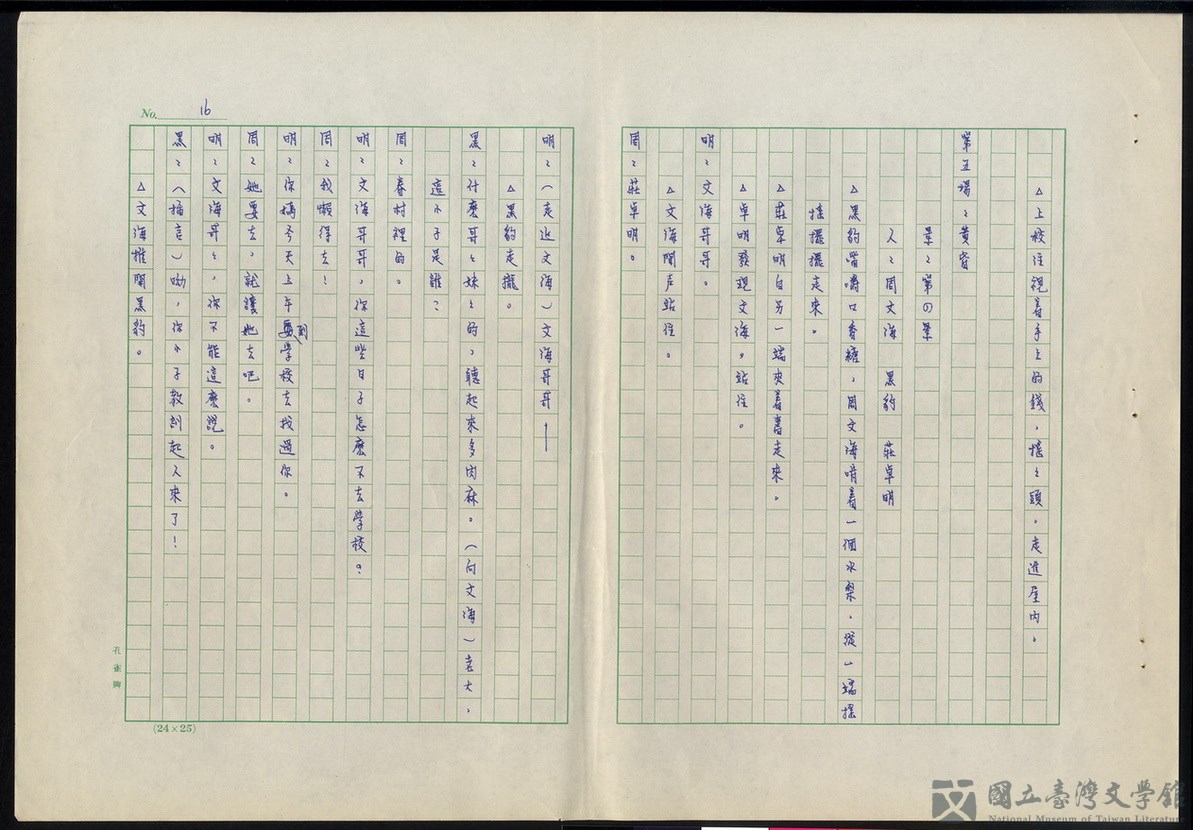 No. 16
△上校注視着手上的錢,搖々頭。走進屋內。
第五場:黃昏
景:第の景
人:周文海 黑豹 莊卓明
△黑豹嘴嚼口香糖,周文海啃着一個水梨,從一端搖
搖擺擺走來。
△莊卓明自另一端夾着書走來。
△卓明發現文海。站住。
明:文海哥。
△文海聞声站住。
周:莊卓明。
明:(走近文海)文海哥哥——
△黑豹走攏。
黑:什麼哥々妹々的,聽起來多肉麻。(向文海)老大,
這小子是誰?
周:眷村裡的。
明:文海哥哥,你這些日子怎麼不去學校?
周:我懶得去!
明:你媽今天上午到學校去找過你。
周:她要去,就讓她去吧。
明:文海哥々,你不能這麼說。
黑:(插言)呦,你小子教訓起人來了!
△文海推開黑豹。
孔雀牌
(24×25)
國立臺灣文學館
National Museum of Taiwan Literature